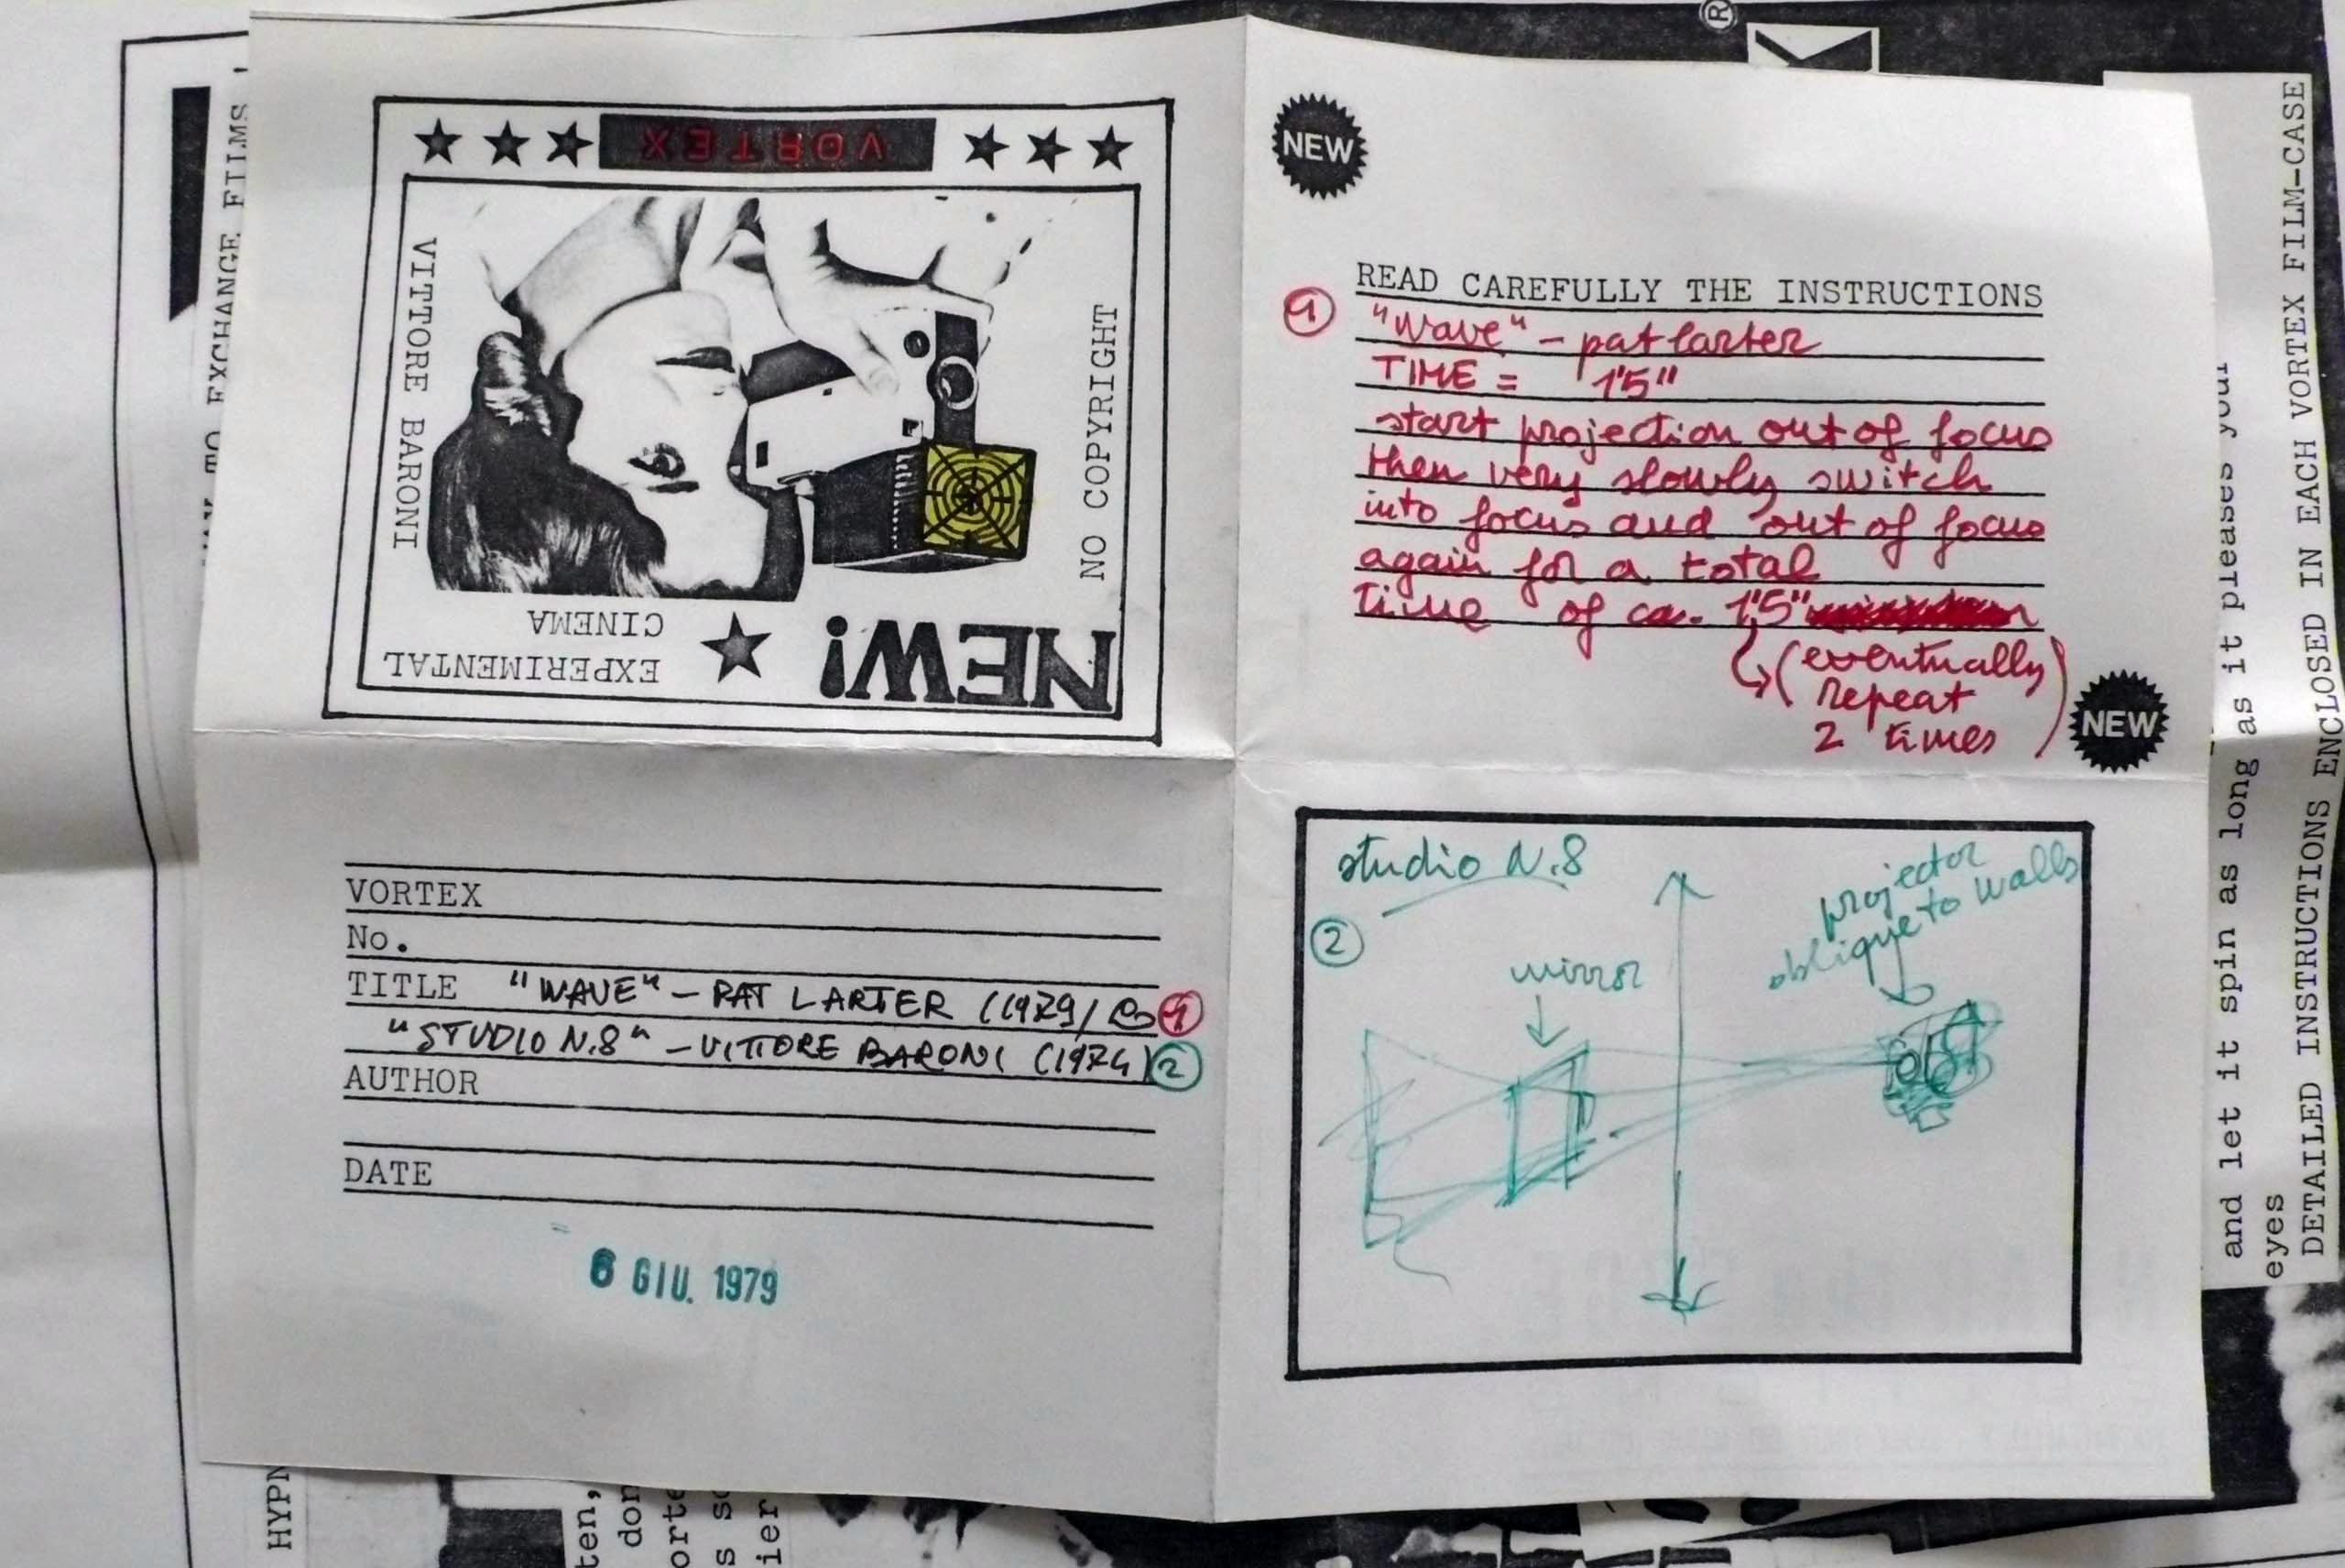 VORTEX
VITTORE BARONI
NO COPYRIGHT
NEW!
EXPERIMENTAL
CINEMA
NEW
READ CAREFULLY THE INSTRUCTIONS
1 "wave" - pat larter
TIME = 1'5"
start projection out of focus
then very slowly switch
into focus and out of focus
again for a total
time of ca. 1'5"
(eventually
repeat
2 times)
NEW
VORTEX
No.
TITLE "WAVE" - PAT LARTER (1979/ 1
"STUDIO N.8" - VITTORE BARONI (1974) 2
AUTHOR
DATE
6 GIU. 1979
studio N.8
2
mirror
projector
oblique to walls
®
TO EXCHANGE FILMS
and let it spin as long as it pleases your
eyes
DETAILED INSTRUCTIONS ENCLOSED IN EACH VORTEX FILM-CASE